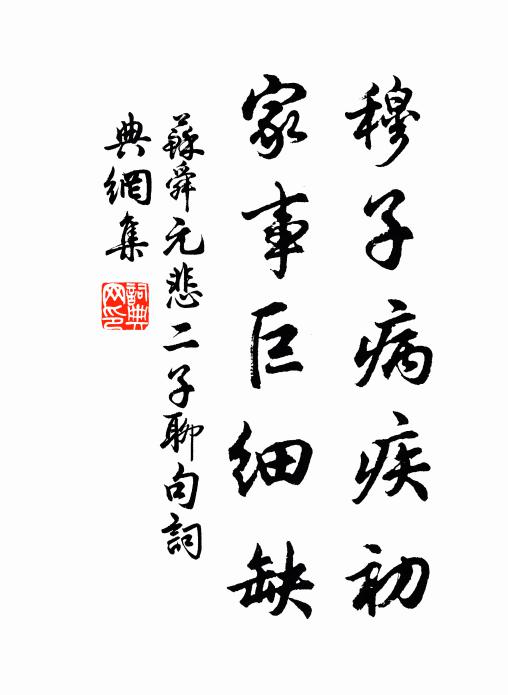 穆子病疾初
家事巨细缺
蘇舜元悲二子聊句詞
典網集
詞典网印